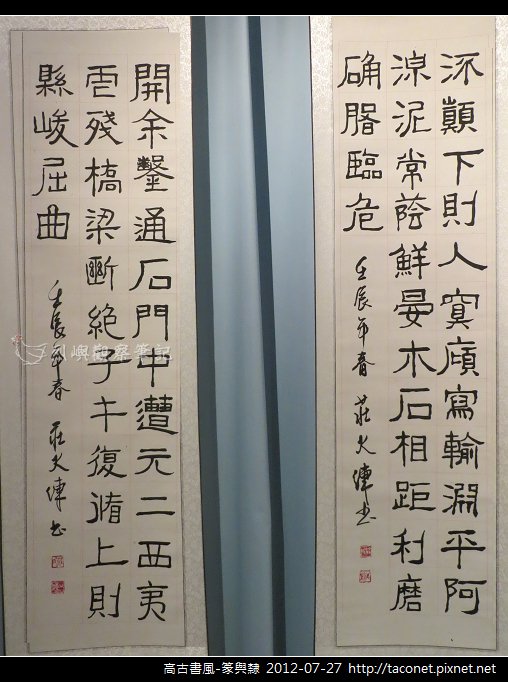 流顛下則入冥廎寫輸淵平阿
湶泥常蔭鮮晏木石相距利磨
确臨危
壬辰年春 莊大緯書
開余鑿通石門中遭元二西夷
虐殘橋梁斷絕子午復循上則
縣峻屈曲
壬辰年春 莊大緯書
嶼觀察筆記
高古書風-篆與隸 2012-07-27 http://taconet.pixnet.net